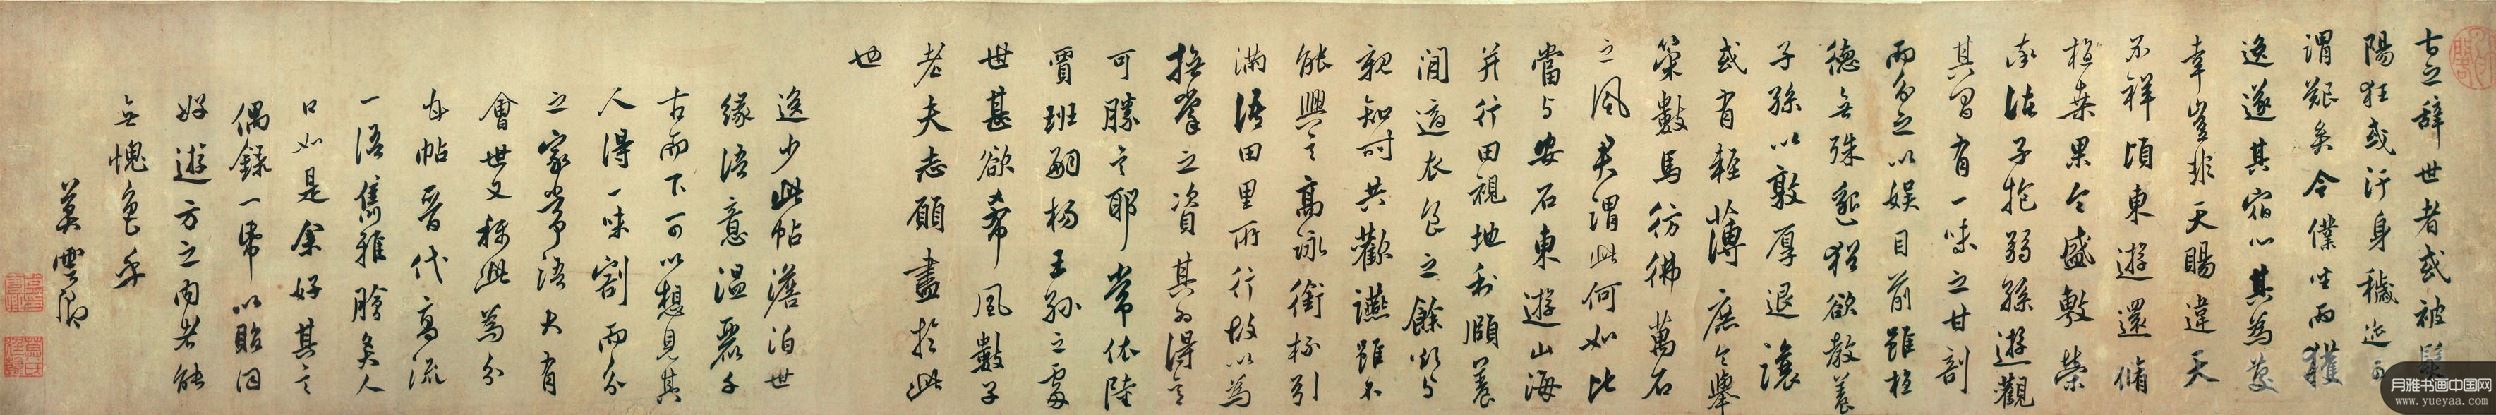 古之辭世者或被髮
陽狂或汙身穢迹可
謂艱矣今僕坐而獲
逸遂其宿心其為慶
幸豈非天賜違天
不祥頃東遊還脩
植桑果今盛敷榮
率諸子抱弱孫遊觀
其間有一味之甘剖
而分之以娛目前雖植
德無殊邈猶欲教養
子孫以敦厚退讓
或有輕薄庶令舉
策數馬彷彿萬石
之風君謂此何如比
當与安石東遊山海
并行田視地利頤養
閒適衣食之餘欲与
親知時共歡讌雖不
能興言高詠銜杯引
滿語田里所行故以為
撫掌之資其為得意
可勝言耶常依陸
賈班嗣楊王孫之處
世甚欲希風數子
老夫志願盡於此
也
逸少此帖澹泊世
緣語意溫麗千
古而下可以想見其
人得一味割而分
之家常語大有
會世又稱此為分
甘帖晉代高流
一語雋雅膾炙人
口如是余好其言
偶錄一帋以貽同
好遊方之內者能
無愧色乎
莫雲卿
月雅书画中国网
www.yueyaa.com